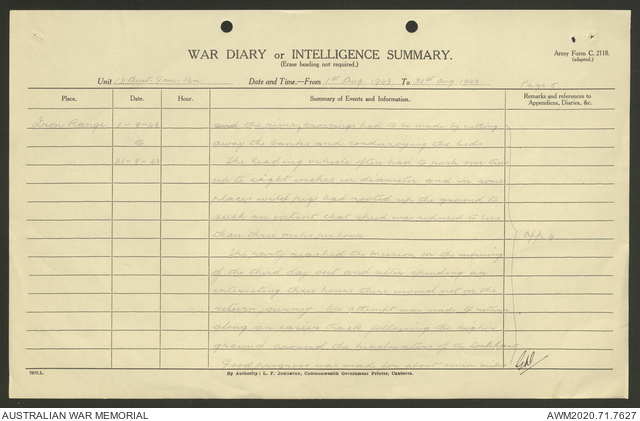 WAR DIARY or INTELLIGENCE SUMMARY.
(Erase heading not required.)
Army Form C. 2118.
(adapted.)
Unit 13 Aust. Gar. Bn. Date and Time.—From 1st Aug. 1943 To 31st Aug 1943
Page 5
Place. Date. Hour. Summary of Events and Information. Remarks and references to Appendices, Diaries, &c.
Iron Range 1-8-43 and the river, crossings had to be made by cutting
to away the banks and corduroying the beds.
31-8-43 The leading vehicle often had to push over trees
up to eight inches in diameter and in some
places wild pigs had rooted up the ground to
such an extent that speed was reduced to less
than three miles per hour. App. 4
The party reached the Mission on the morning
of the third day out and after spending an
interesting three hours there moved out on the
return journey. An attempt was made to return
along an easier track following the higher
ground around the headwaters of the Lockhart
Good progress was made for about nine miles
By Authority: L. F. Johnston, Commonwealth Government Printer, Canberra.
AUSTRALIAN WAR MEMORIAL
AWM2020.71.7627